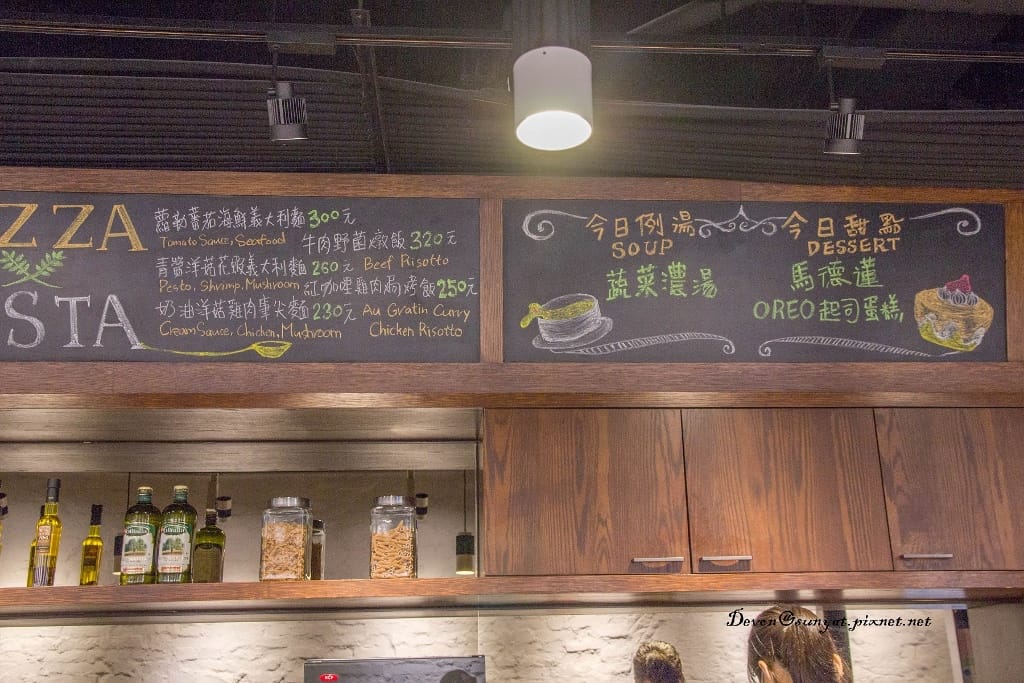 ZZA
STA
蘿勒蕃茄海鮮義大利麵300元
Tomato Sauce, Seafood
青醬洋菇花蝦義大利麵260元
Pesto, Shrimp, Mushroom
奶油洋菇雞肉筆尖麵230元
Cream Sauce, Chicken, Mushroom
牛肉野菌燉飯320元
Beef Risotto
紅咖哩雞肉焗烤飯250元
Au Gratin Curry
Chicken Risotto
今日例湯
SOUP
蔬菜濃湯
今日甜點
DESSERT
馬德蓮
OREO起司蛋糕
Deven@sunyat.pixnet.net